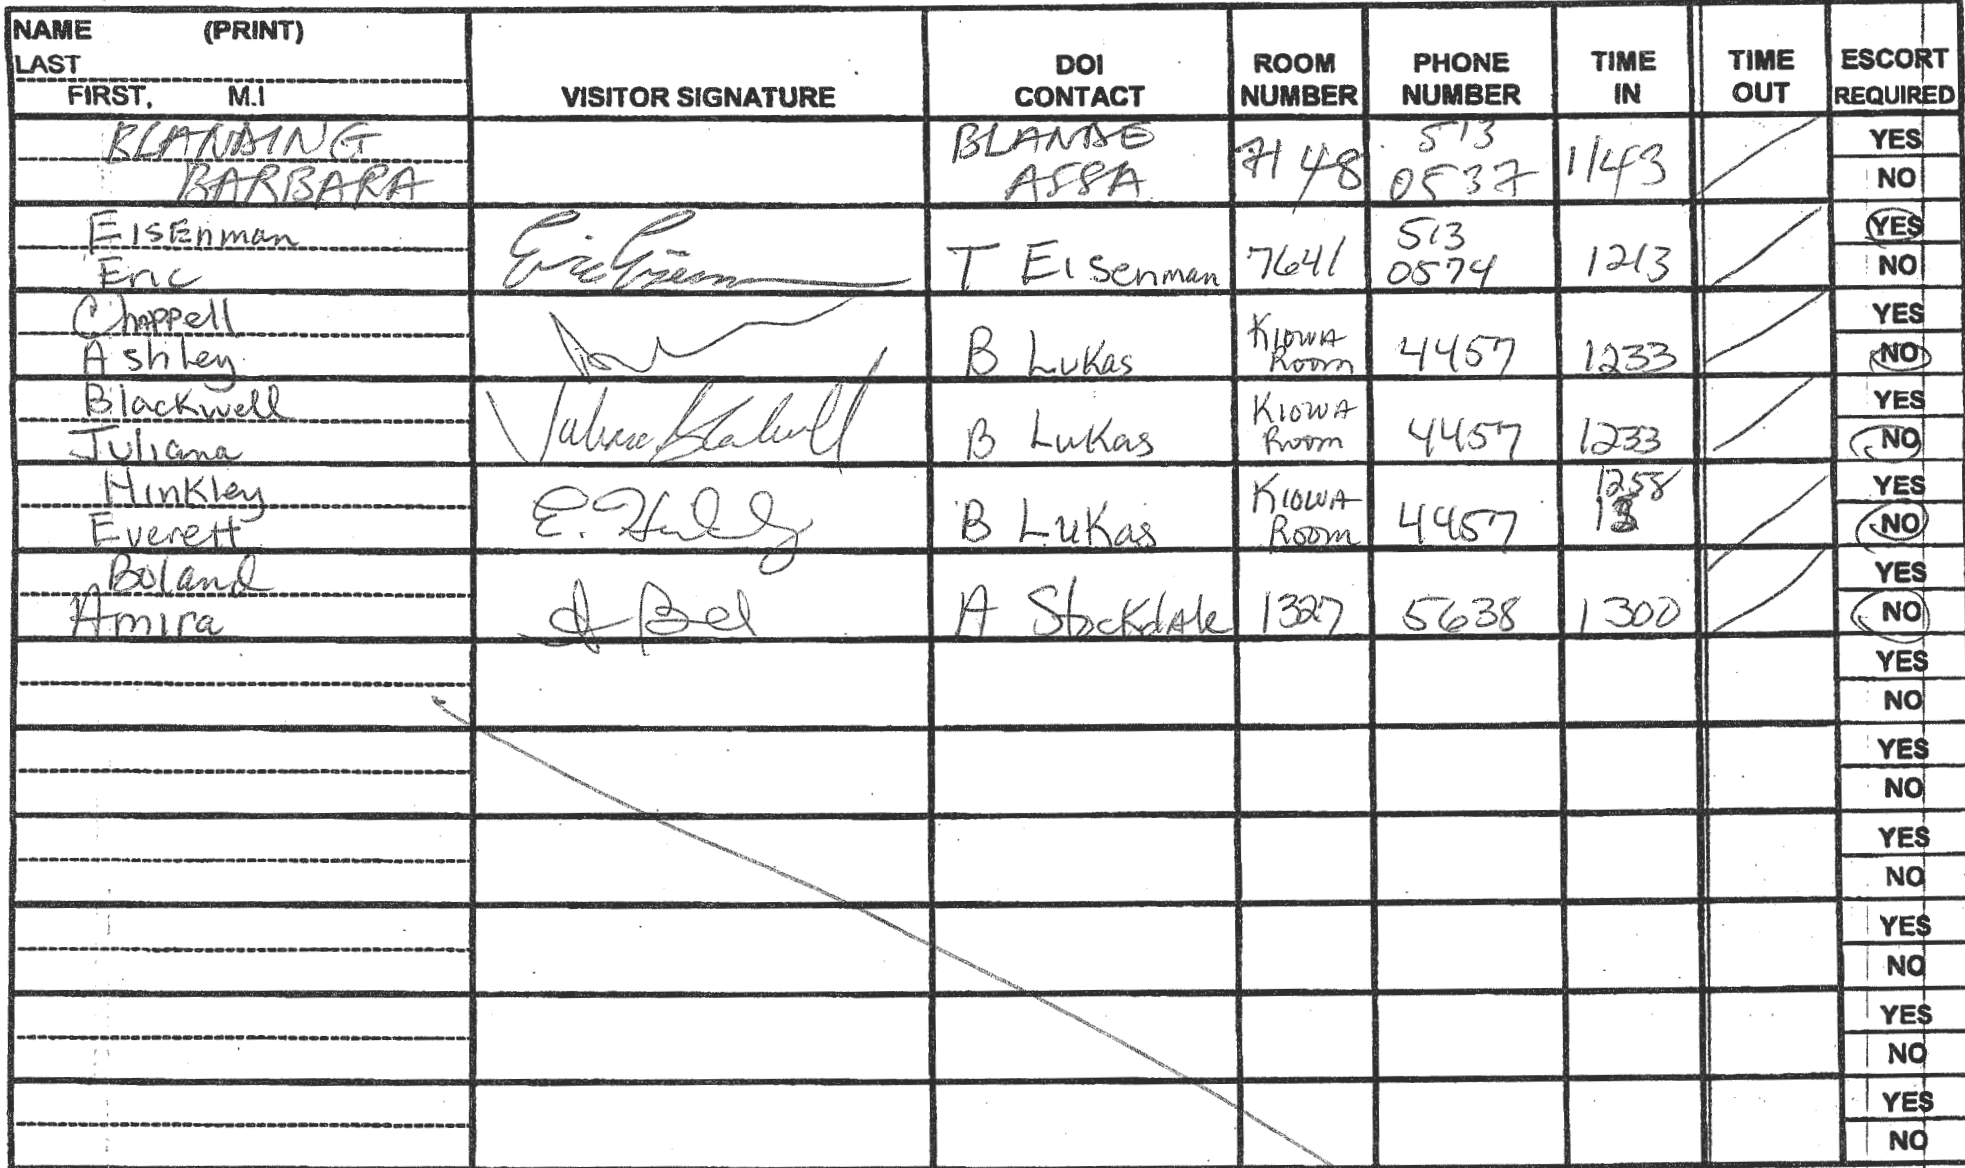 NAME (PRINT)
LAST
FIRST, M.I
VISITOR SIGNATURE
DOI CONTACT
ROOM NUMBER
PHONE NUMBER
TIME IN
TIME OUT
ESCORT REQUIRED
BLANDING
BARBARA
7148
513
0537
1143
YES
NO
Eisenman
Eric
T Eisenman
7641
513
0574
1213
YES
NO
Chappell
Ashley
B Lukas
Kiowa
Room
4457
1233
YES
NO
Blackwell
Juliana
Juliana Blackwell
B Lukas
Kiowa
Room
4457
1233
YES
NO
Hinkley
Everett
E. Hinkley
B Lukas
Kiowa
Room
4457
1258
YES
NO
Boland
Amira
A Stockdale
1327
5638
1300
YES
NO
YES
NO
YES
NO
YES
NO
YES
NO
YES
NO
YES
NO